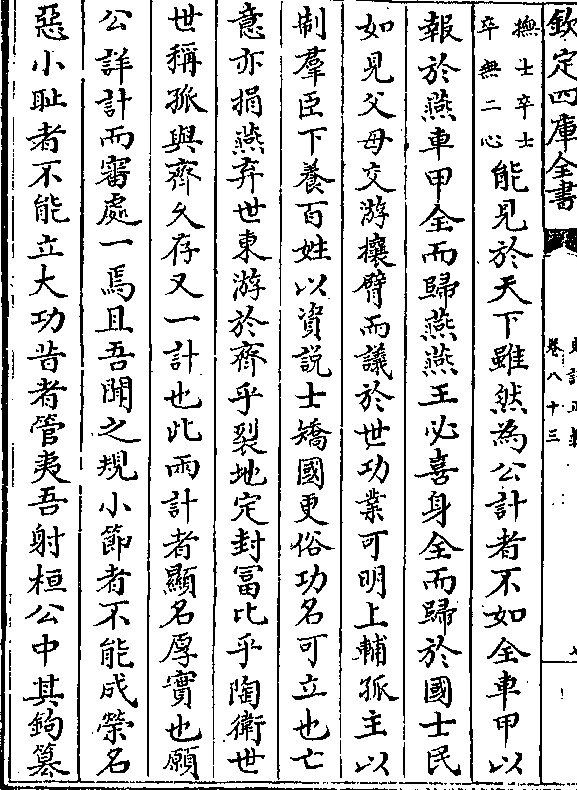 欽定四庫全書
史記正義
卷八十三
撫士卒士
卒無二心
能見於天下雖然為公計者不如全車甲以
報於燕車甲全而歸燕燕王必喜身全而歸於國士民
如見父母交游攘臂而議於世功業可明上輔孤主以
制羣臣下養百姓以資説士矯國更俗功名可立也亡
意亦捐燕弃世東游於齊乎裂地定封冨比乎陶衛世
世稱孤與齊久存又一計也此兩計者顯名厚實也願
公詳計而審處一焉且吾聞之規小節者不能成榮名
惡小恥者不能立大功昔者管夷吾射桓公中其鉤篡